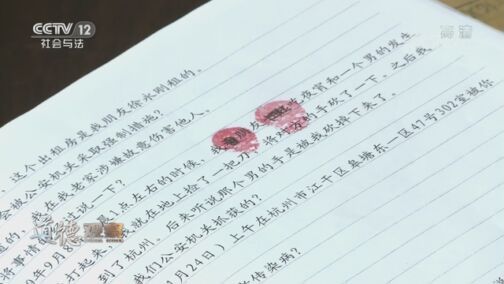 CCTV 12
社会与法
高清
，这个出租房是我朋友徐水刚租的。
会被公安机关采取强制措施？
道的，我在我老家涉嫌故意伤害他人。
将事情 过说一下？
9年9月8 点左右的时候，我 朋友 吃夜宵和一个男的发生
打起来 我就在地上捡了一把刀，将对方的手砍了一下。之后我
到了杭州。后来听说那个男的手是被我砍掉下来了。
我们公安机关抓获的？
1月24日）上午在杭州市江干区阜塘东一区47号302室被你
传染病？
道德观察